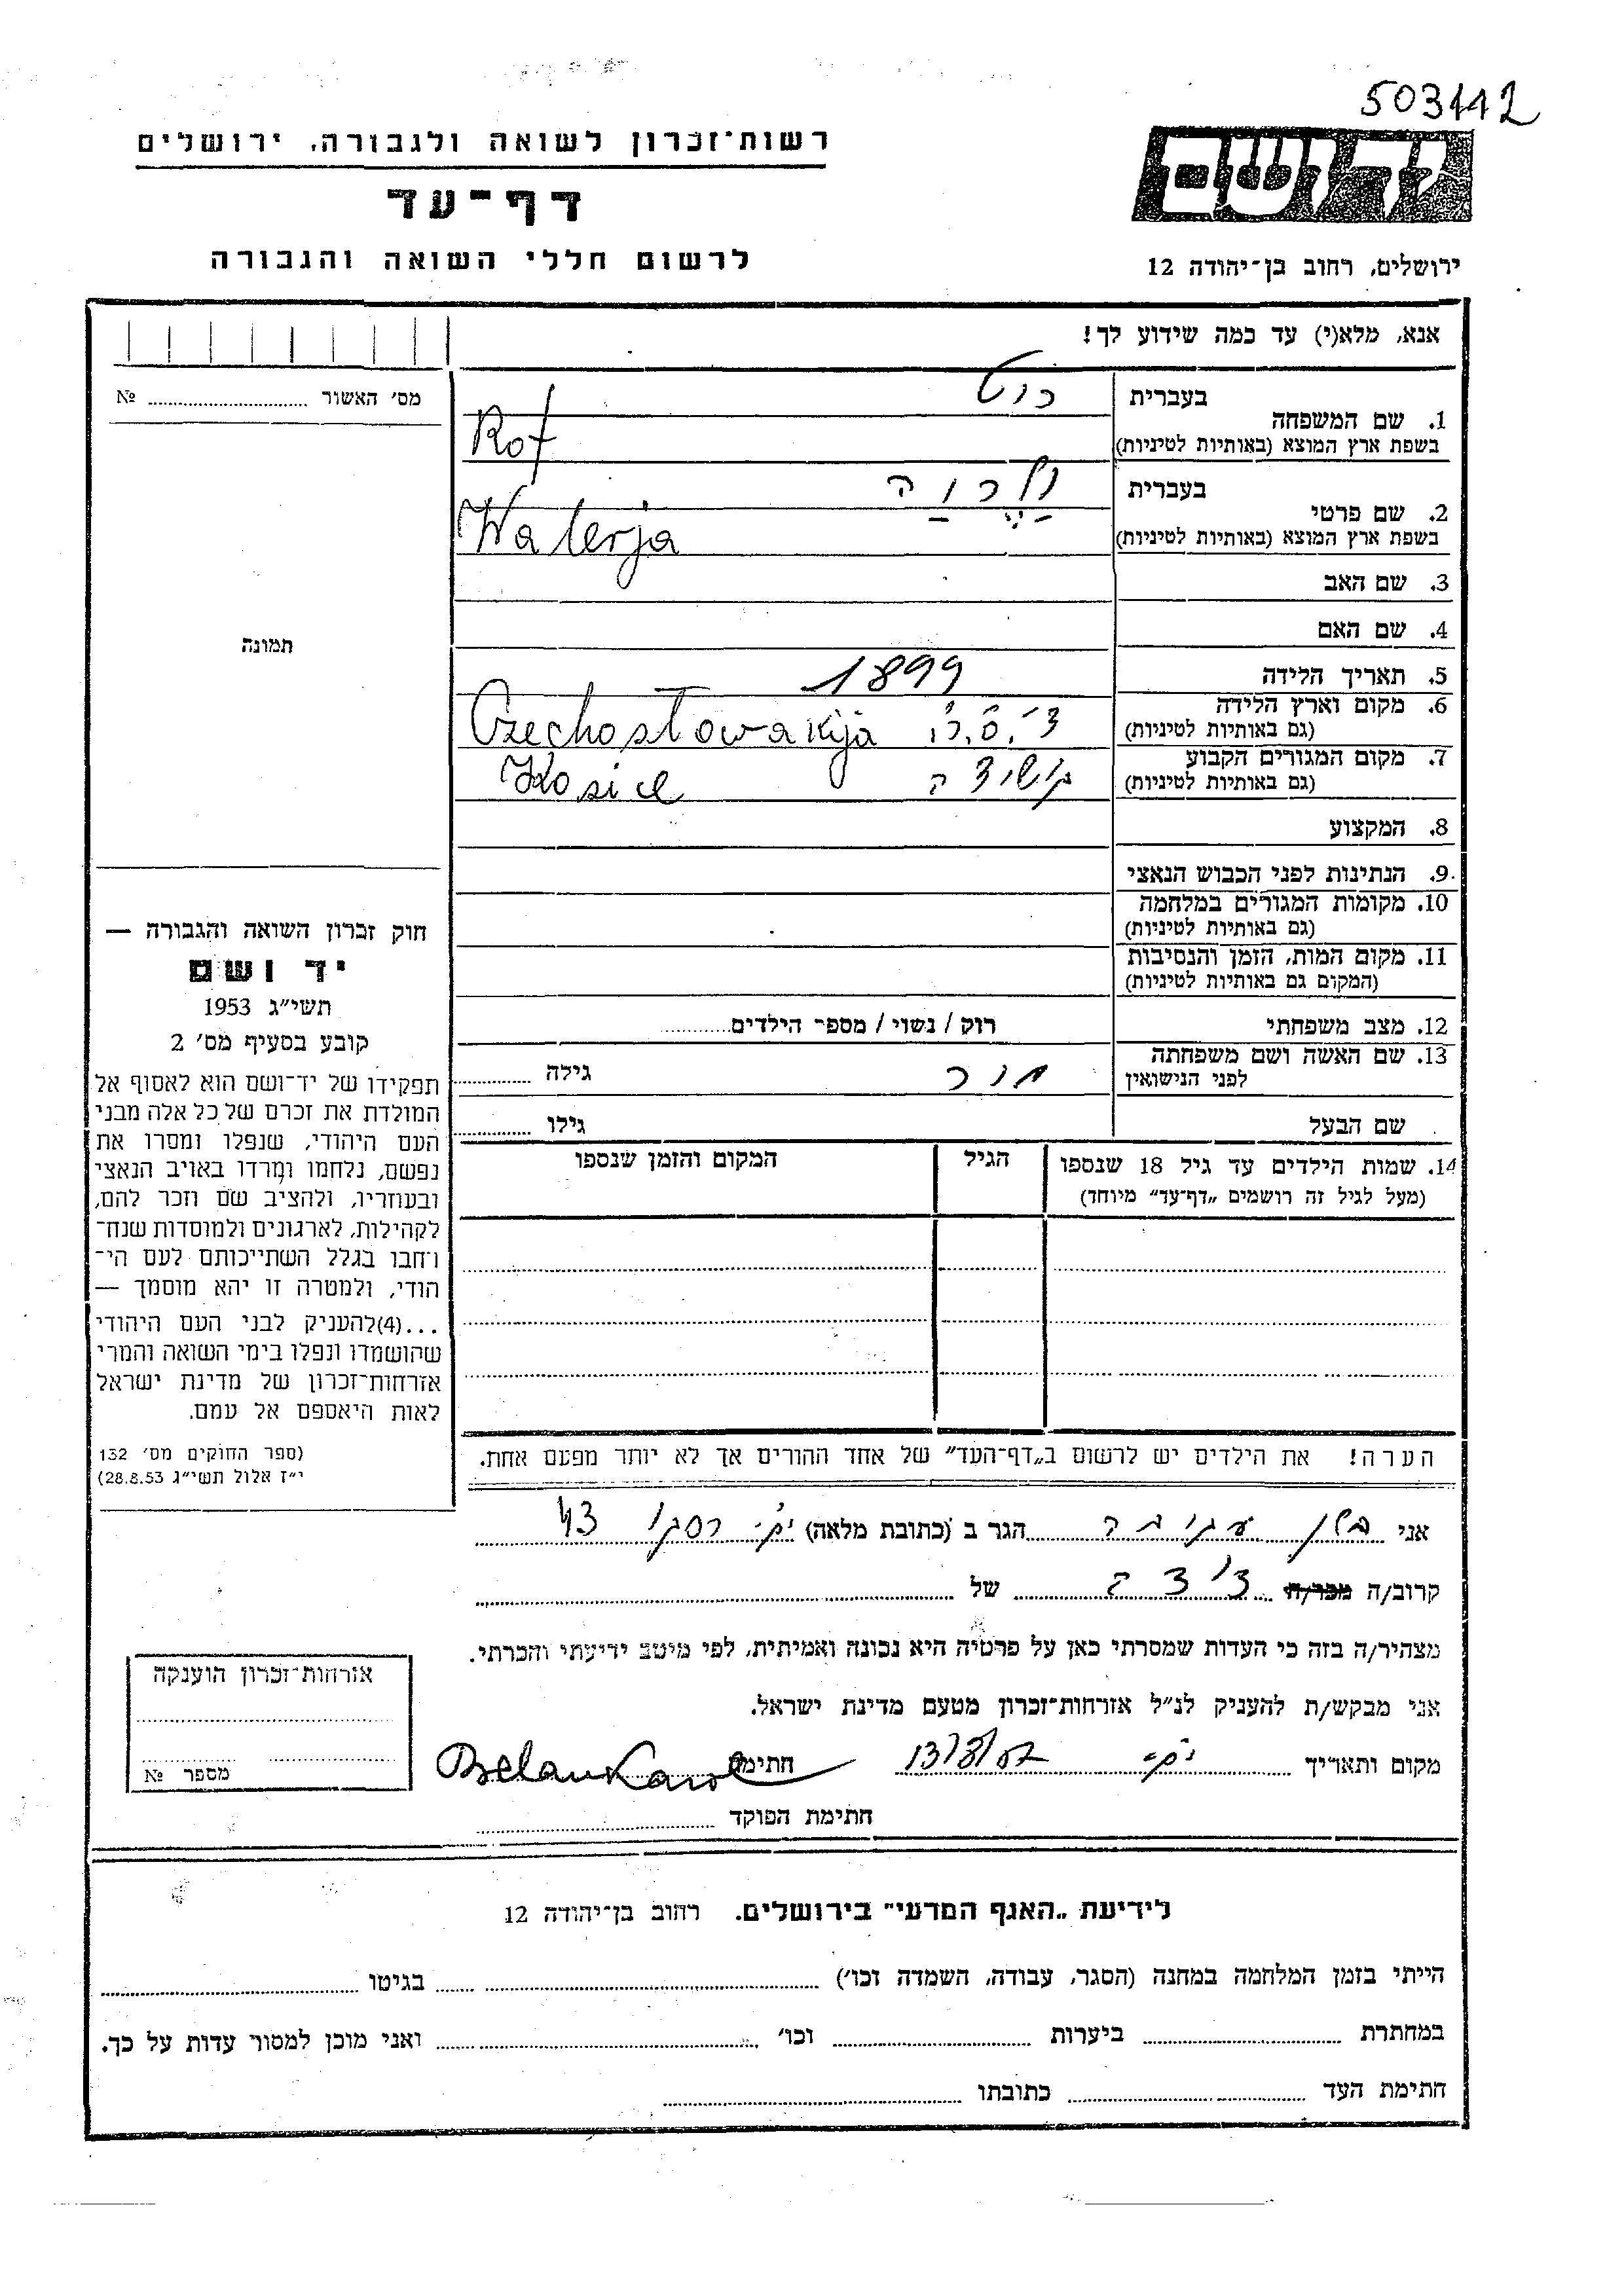 503442
רשות־זכרון לשואה ולגבורה, ירושלים
יד ושם
דף־עד
לרשום חללי השואה והגבורה
ירושלים, רחוב בן־יהודה 12
אנא, מלא(י) עד כמה שידוע לך!
מס׳ האשור № 
תמונה
1. שם המשפחה
בעברית
רוט
בשפת ארץ המוצא (באותיות לטיניות)
Rot
2. שם פרטי
בעברית
בשפת ארץ המוצא (באותיות לטיניות)
Walerja
3. שם האב
4. שם האם
5. תאריך הלידה 1899
6. מקום וארץ הלידה
(גם באותיות לטיניות)
צ׳.ס.ר. Czechosłowakija
7. מקום המגורים הקבוע
(גם באותיות לטיניות)
קושיצה Kosice
8. המקצוע
9. הנתינות לפני הכבוש הנאצי
10. מקומות המגורים במלחמה
(גם באותיות לטיניות)
11. מקום המות, הזמן והנסיבות
(המקום גם באותיות לטיניות)
12. מצב משפחתי רוק / נשוי / מספר הילדים
13. שם האשה ושם משפחתה
לפני הנישואין
גילה
שם הבעל גילו
14. שמות הילדים עד גיל 18 שנספו
(מעל לגיל זה רושמים „דף־עד״ מיוחד)
הגיל
המקום והזמן שנספו
הערה! את הילדים יש לרשום ב„דף־העד״ של אחד ההורים אך לא יותר מפעם אחת.
חוק זכרון השואה והגבורה —
יד ושם
תשי״ג 1953
קובע בסעיף מס׳ 2
תפקידו של יד־ושם הוא לאסוף אל
המולדת את זכרם של כל אלה מבני
העם היהודי, שנפלו ומסרו את
נפשם, נלחמו ומרדו באויב הנאצי
ובעוזריו, ולהציב שם וזכר להם,
לקהילות, לארגונים ולמוסדות שנח־
רחבו בגלל השתייכותם לעם הי־
הודי, ולמטרה זו יהא מוסמך —
...(4)להעניק לבני העם היהודי
שהושמדו ונפלו בימי השואה והמרי
אזרחות־זכרון של מדינת ישראל
לאות היאספם אל עמם.
(ספר החוקים מס׳ 132
י״ז אלול תשי״ג 28.8.53)
אני הגר ב (כתובת מלאה) 43
קרוב/ה מכר/ה של
מצהיר/ה בזה כי העדות שמסרתי כאן על פרטיה היא נכונה ואמיתית, לפי מיטב ידיעתי והכרתי.
אני מבקש/ת להעניק לנ״ל אזרחות־זכרון מטעם מדינת ישראל.
מקום ותאריך חתימה Belan Karol
חתימת הפוקד
אזרחות־זכרון הוענקה
מספר №
לידיעת „האגף המדעי״ בירושלים. רחוב בן־יהודה 12
הייתי בזמן המלחמה במחנה (הסגר, עבודה, השמדה וכו׳) בגיטו
במחתרת ביערות וכו׳ ואני מוכן למסור עדות על כך.
חתימת העד כתובתו